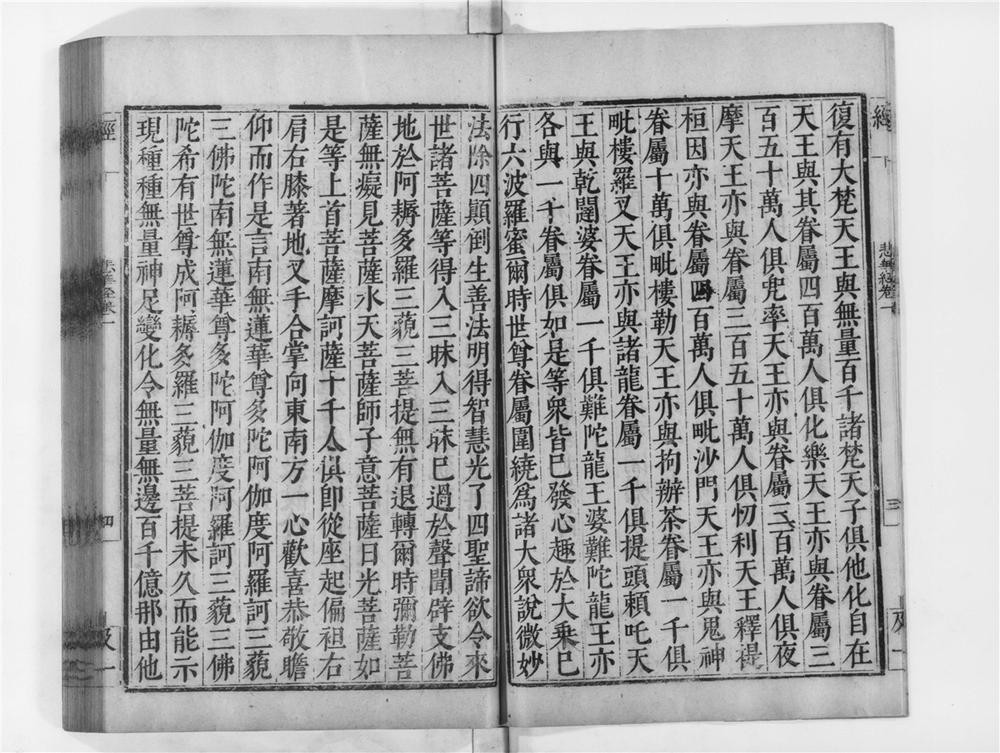 經
悲華經卷一
三
及一
復有大梵天王與無量百千諸梵天子俱他化自在
天王與其眷屬四百萬人俱化樂天王亦與眷屬三
百五十萬人俱兜率天王亦與眷屬三百萬人俱夜
摩天王亦與眷屬三百五十萬人俱忉利天王釋提
桓因亦與眷屬四百萬人俱毗沙門天王亦與鬼神
眷屬十萬俱毗樓勒天王亦與拘辦荼眷屬一千俱
毗樓羅叉天王亦與諸龍眷屬一千俱提頭賴吒天
王與乾闥婆眷屬一千俱難陀龍王婆難陀龍王亦
各與一千眷屬俱如是等衆皆已發心趣於大乘已
行六波羅蜜爾時世尊眷屬圍繞爲諸大衆說微妙
法除四顛倒生善法明得智慧光了四聖諦欲令來
世諸菩薩等得入三昧入三昧已過於聲聞辟支佛
地於阿耨多羅三藐三菩提無有退轉爾時彌勒菩
薩無癡見菩薩水天菩薩師子意菩薩日光菩薩如
是等上首菩薩摩訶薩十千人俱即從座起偏袒右
肩右膝著地叉手合掌向東南方一心歡喜恭敬瞻
仰而作是言南無蓮華尊多陀阿伽度阿羅訶三藐
三佛陀南無蓮華尊多陀阿伽度阿羅訶三藐三佛
陀希有世尊成阿耨多羅三藐三菩提未久而能示
現種種無量神足變化令無量無邊百千億那由他
經
悲華經卷一
四
及一